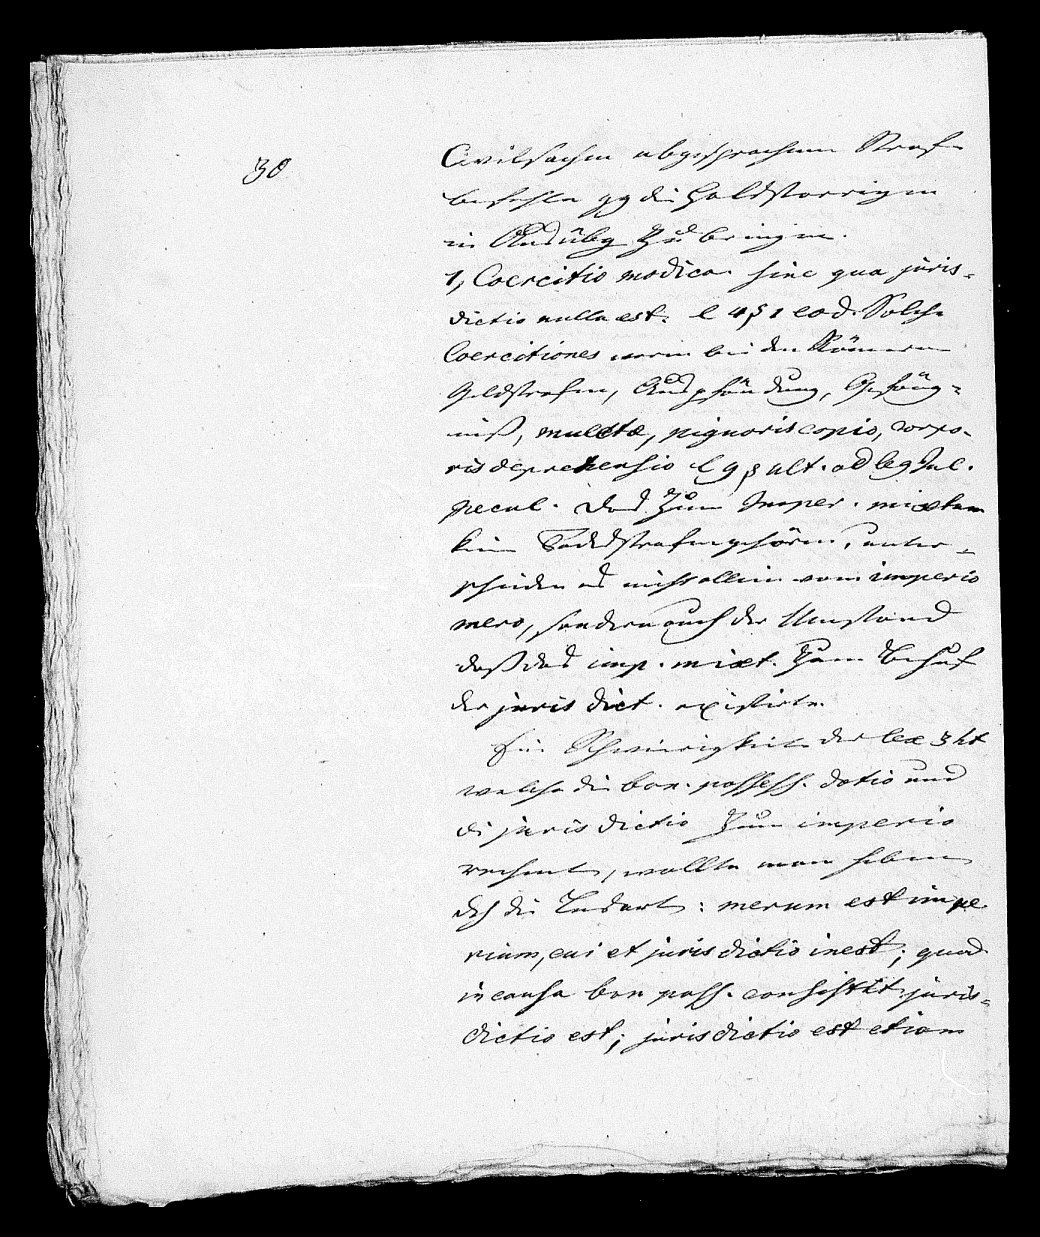 30
Civilsachen abgesprochenen Straf-
befehle gg die Halsstarrigen
in Ausübg zu bringen.
1, Coercitio modica sine qua juris-
dictio nulla est. l 4 § 1 eod. Solche
Coercitiones waren bei den Römern
Geldstrafen, Auspfändung, Gefäng-
niß, mulctæ, pignoris capio, corpo-
ris deprehensio l 9 § ult. ad leg Jul.
pecul. Daß zum Imper. mixtum
keine Todesstrafen gehören, unter-
scheiden es nicht allein vom imperio
mero, sondern auch der Umstand
daß das imp. mixt. zum Behuf
der juris dict. existirte.
Die Schwierigkeit der lex 3 ht
welche die bon. possess. datio und
die juris dictio zum imperio
rechnet, wollte man heben
dch die Lesart: merum est impe
rium, cui et juris dictio inest; quod
in causa bon poss. consistit juris-
dictio est; juris dictio est etiam